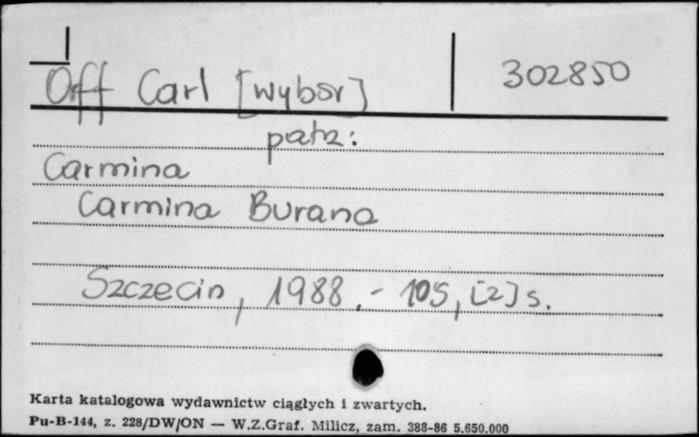 Orff Carl [wybór] 302850
patrz:
Carmina
Carmina Burana
Szczecin, 1988.- 105, [2] s.
Karta katalogowa wydawnictw ciągłych i zwartych.
Pu-B-144, z. 228/DW/ON — W.Z.Graf. Milicz, zam. 388-86 5.650.000